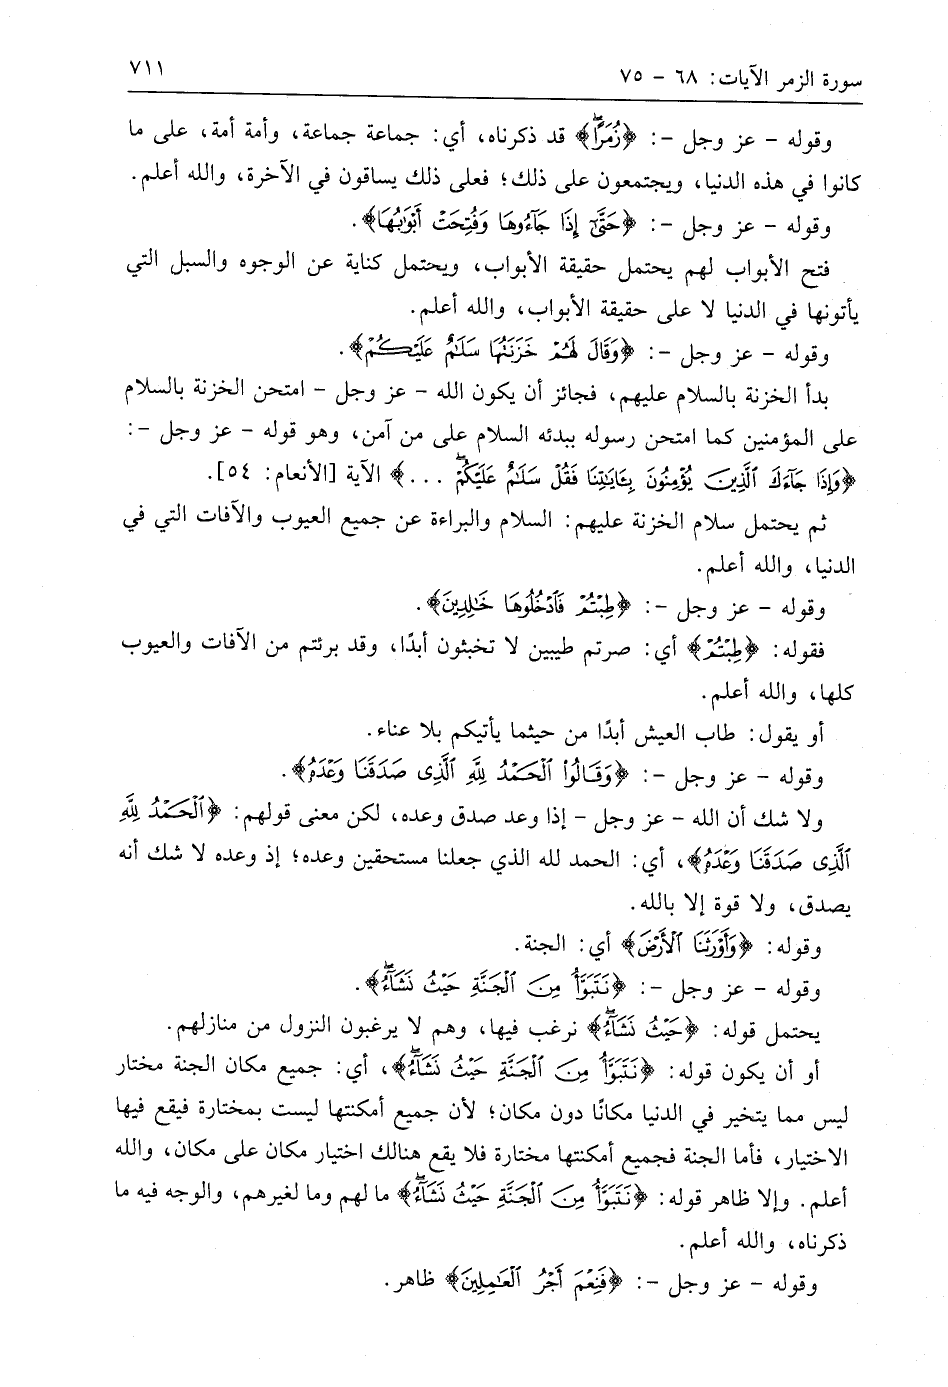 سورة الزمر الآيات: ٦٨ - ٧٥ ٧١١
وقوله - عز وجل -: ﴿زُمَرًا﴾ قد ذكرناه، أي: جماعة جماعة، وأمة أمة، على ما
كانوا في هذه الدنيا، ويجتمعون على ذلك؛ فعلى ذلك يساقون في الآخرة، والله أعلم.
وقوله - عز وجل -: ﴿حَتَّىٰٓ إِذَا جَآءُوهَا وَفُتِحَتۡ أَبۡوَٰبُهَا﴾.
فتح الأبواب لهم يحتمل حقيقة الأبواب، ويحتمل كناية عن الوجوه والسبل التي
يأتونها في الدنيا لا على حقيقة الأبواب، والله أعلم.
وقوله - عز وجل -: ﴿وَقَالَ لَهُمۡ خَزَنَتُهَا سَلَٰمٌ عَلَيۡكُمۡ﴾.
بدأ الخزنة بالسلام عليهم، فجائز أن يكون الله - عز وجل - امتحن الخزنة بالسلام
على المؤمنين كما امتحن رسوله ببدئه السلام على من آمن، وهو قوله - عز وجل -:
﴿وَإِذَا جَآءَكَ ٱلَّذِينَ يُؤۡمِنُونَ بِـَٔايَٰتِنَا فَقُلۡ سَلَٰمٌ عَلَيۡكُمۡۖ ...﴾ الآية [الأنعام: ٥٤].
ثم يحتمل سلام الخزنة عليهم: السلام والبراءة عن جميع العيوب والآفات التي في
الدنيا، والله أعلم.
وقوله - عز وجل -: ﴿طِبۡتُمۡ فَٱدۡخُلُوهَا خَٰلِدِينَ﴾.
فقوله: ﴿طِبۡتُمۡ﴾ أي: صرتم طيبين لا تخبثون أبدًا، وقد برئتم من الآفات والعيوب
كلها، والله أعلم.
أو يقول: طاب العيش أبدًا من حيثما يأتيكم بلا عناء.
وقوله - عز وجل -: ﴿وَقَالُواْ ٱلۡحَمۡدُ لِلَّهِ ٱلَّذِى صَدَقَنَا وَعۡدَهُۥ﴾.
ولا شك أن الله - عز وجل - إذا وعد صدق وعده، لكن معنى قولهم: ﴿ٱلۡحَمۡدُ لِلَّهِ
ٱلَّذِى صَدَقَنَا وَعۡدَهُۥ﴾، أي: الحمد لله الذي جعلنا مستحقين وعده؛ إذ وعده لا شك أنه
يصدق، ولا قوة إلا بالله.
وقوله: ﴿وَأَوۡرَثَنَا ٱلۡأَرۡضَ﴾ أي: الجنة.
وقوله - عز وجل -: ﴿نَتَبَوَّأُ مِنَ ٱلۡجَنَّةِ حَيۡثُ نَشَآءُۖ﴾.
يحتمل قوله: ﴿حَيۡثُ نَشَآءُۖ﴾ نرغب فيها، وهم لا يرغبون النزول من منازلهم.
أو أن يكون قوله: ﴿نَتَبَوَّأُ مِنَ ٱلۡجَنَّةِ حَيۡثُ نَشَآءُۖ﴾، أي: جميع مكان الجنة مختار
ليس مما يتخير في الدنيا مكانًا دون مكان؛ لأن جميع أمكنتها ليست بمختارة فيقع فيها
الاختيار، فأما الجنة فجميع أمكنتها مختارة فلا يقع هنالك اختيار مكان على مكان، والله
أعلم. وإلا ظاهر قوله: ﴿نَتَبَوَّأُ مِنَ ٱلۡجَنَّةِ حَيۡثُ نَشَآءُۖ﴾ ما لهم وما لغيرهم، والوجه فيه ما
ذكرناه، والله أعلم.
وقوله - عز وجل -: ﴿فَنِعۡمَ أَجۡرُ ٱلۡعَٰمِلِينَ﴾ ظاهر.